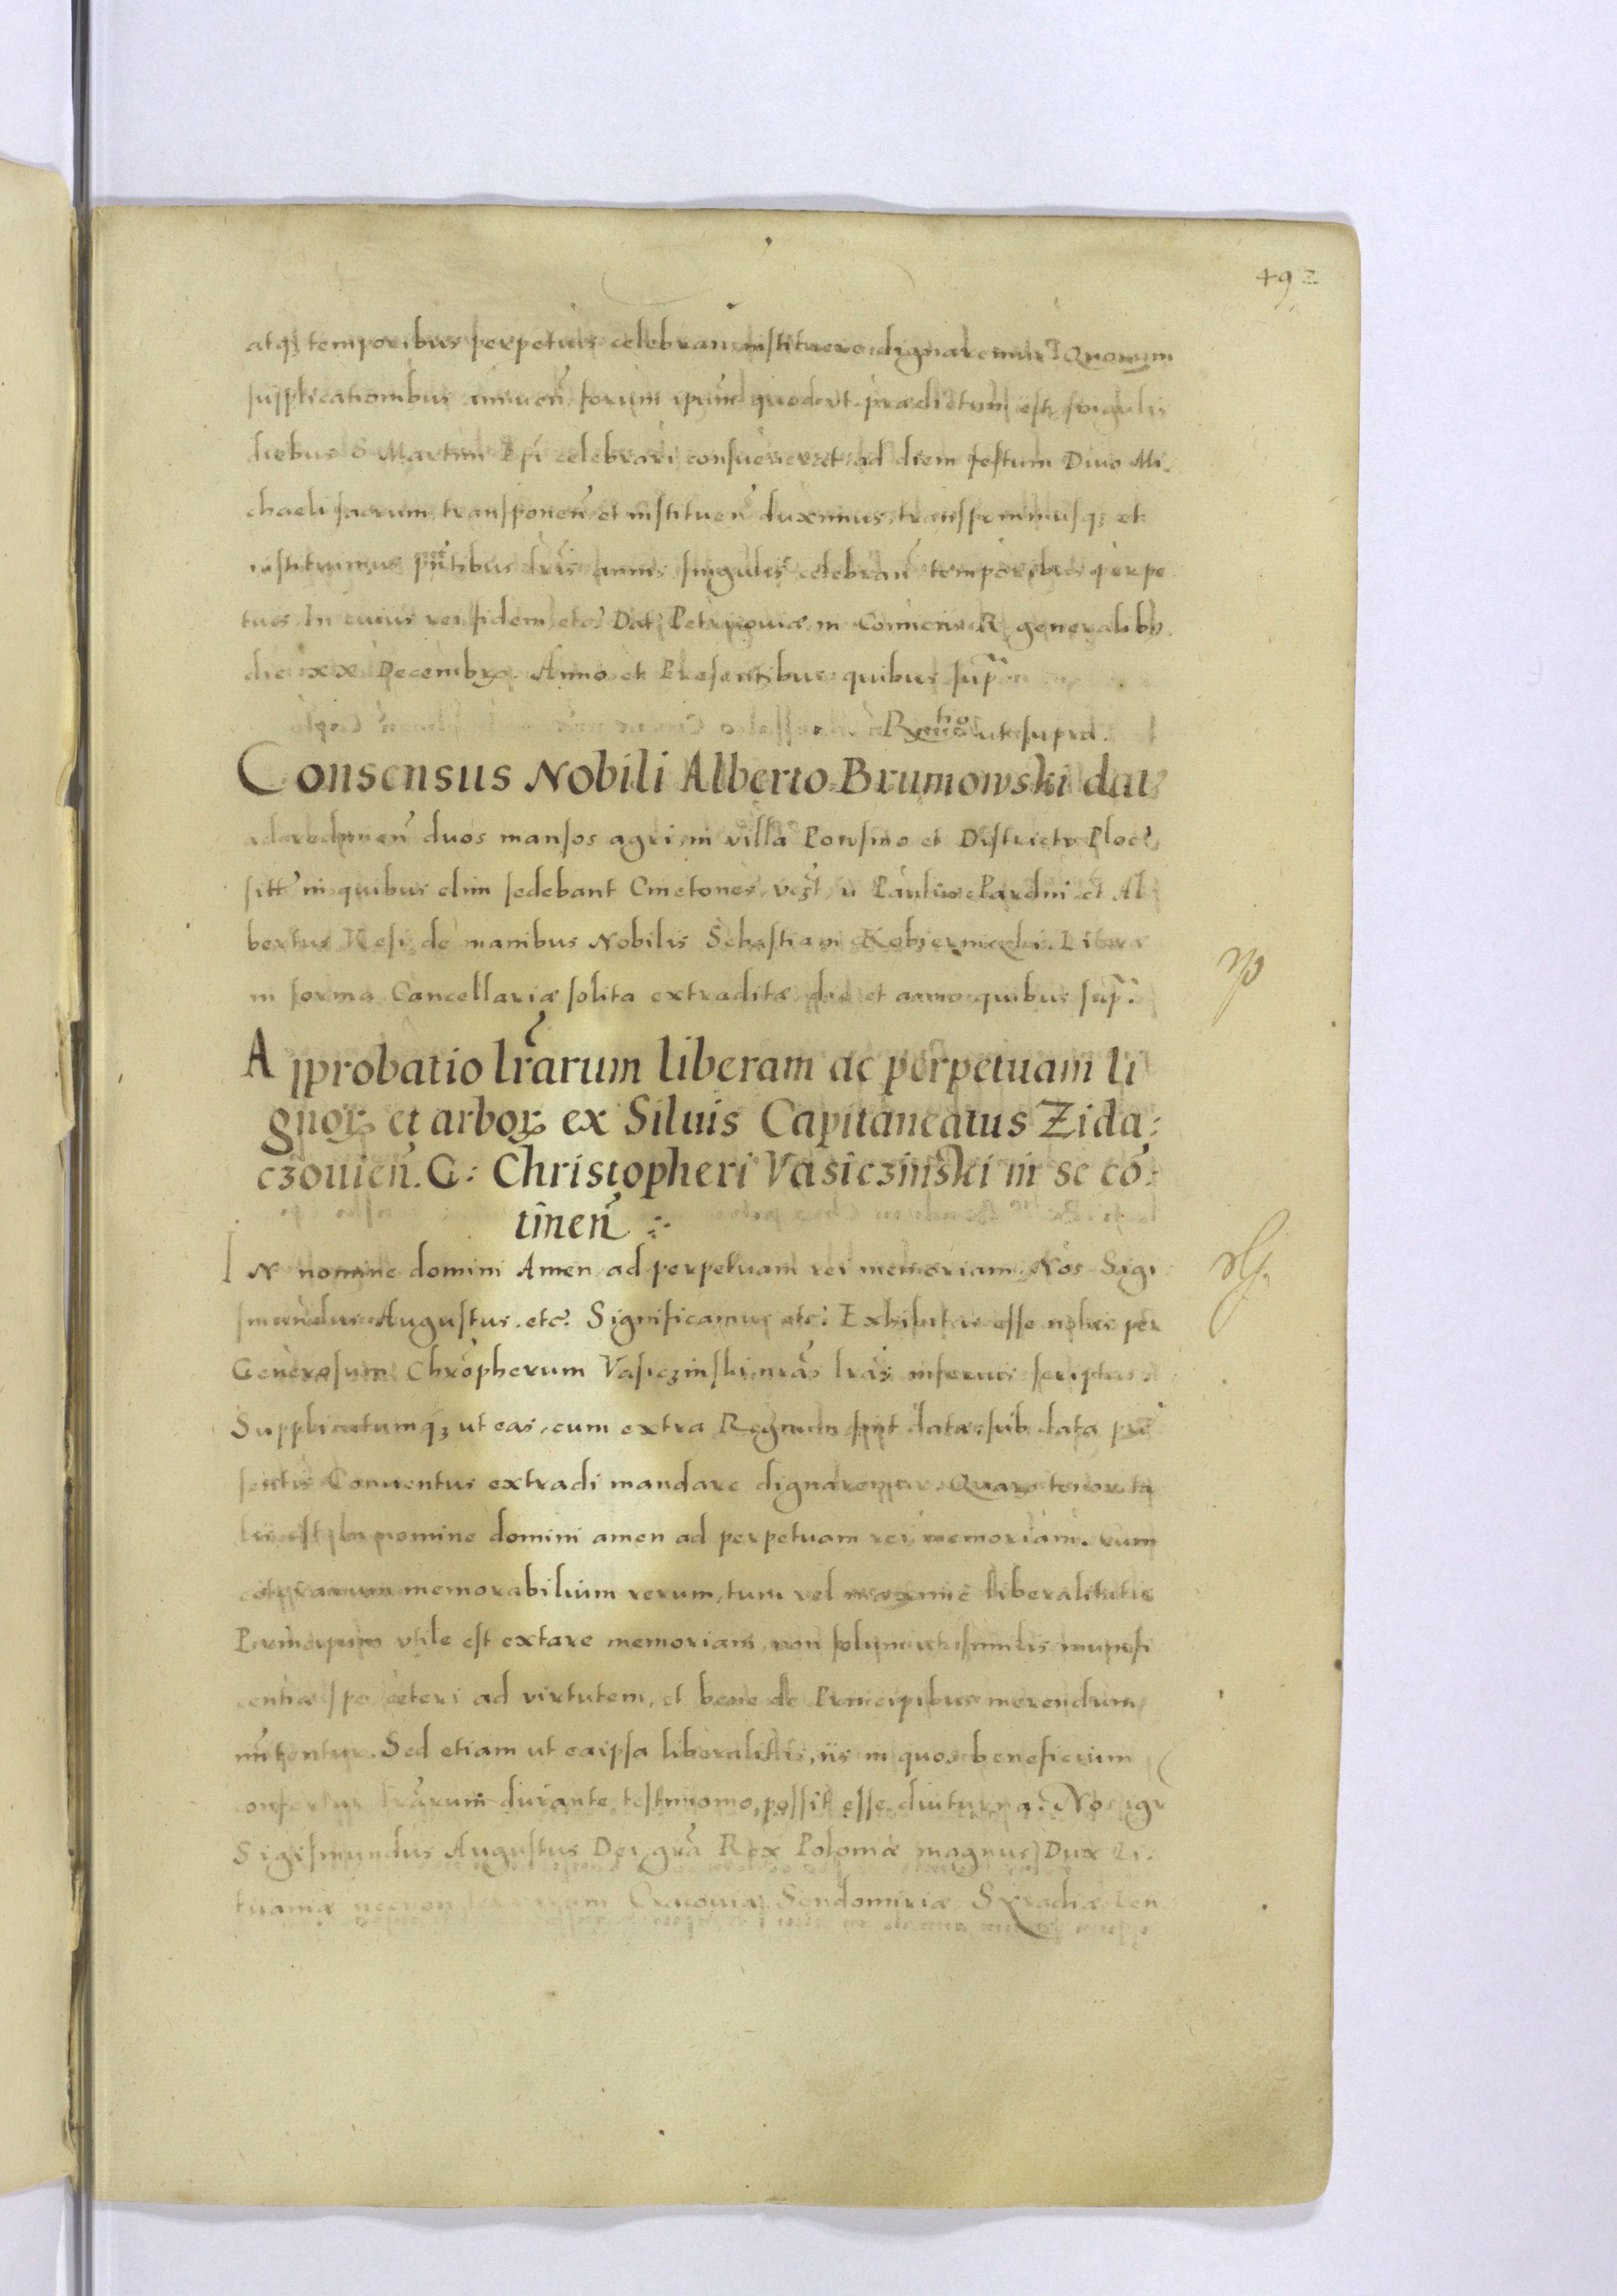 492
atq; temporibus perpetuis celebran̄ instituere dignaremur. Quorum
supplicationibus annuen̄ forum ipsum quod ut prædictum est singulis
diebus S Martini Epī celebrari consueverat ad diem festum Divo Mi
chaeli sacrum transponen̄ et instituen̄ duximus, transponimusq; et
instituimus pn̄tibus lrīs annis singulis celebran̄ temporibus perpe
tuis. In cuius rei fidem etc. Dat Petricoviæ in Conventu R generalibȝ
die xx Decembr. Anno et Presentibus quibus sup̄
Relatio ut supra.
Consensus Nobili Alberto Brumowski dat
ad redimen̄ duos mansos agri in villa Ponsino et Districtu Ploc̄
sitt in quibus olim sedebant Cmetones, et Al
bertus Kesi de manibus Nobilis Sebastiani Litteræ
in forma Cancellariæ solita extraditæ die et anno quibus sup̄.
Approbatio lrārum liberam ac perpetuam li
gnoꝝ et arboꝝ ex Siluis Capitaneatus Zida:
czouien̄. G: Christopheri Vasiczinski in se cō:
tīnen̄ :·
IN nomine domini Amen, ad perpetuam rei memoriam. Nos Sigi
smundus Augustus. etc. Significamus etc. Exhibitas esse nobis per
Generosum Chrōpherum Vasiczinski, nrās lrās inferius scriptas.
Supplicatumq; ut eas, cum extra Regnum sint datæ, sub data præ
sentis Conuentus extradi mandare dignaremur. Quaꝝ tenor ta
lis est In nomine domini amen ad perpetuam rei memoriam. cum
memorabilium rerum, tum vel maxime liberalitatis
Principum vtile est extare memoriam, non solum ut similis munifi
centiæ spe ceteri ad virtutem, et bene de Principibus merendum
nitentur. Sed etiam ut eaipsa liberalitas, iis in quos beneficium
confertur lrārum durante testimonio, possit esse diuturna. Nos igr
Sigismundus Augustus Dei grā Rex Poloniæ magnus Dux Li:
tuaniæ necnon terrarum Cracouiæ Sendomiriæ Siradiæ Len